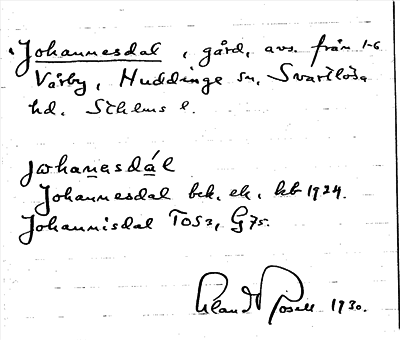 Johannesdal, gård, avs. från 1-6
Vårby, Huddinge sn, Svartlösa
hd. Sthlms l.
Johannesdal bek. ek. kb 1924.
Johannisdal TOS2, G75.
Erland Rosell 1930.